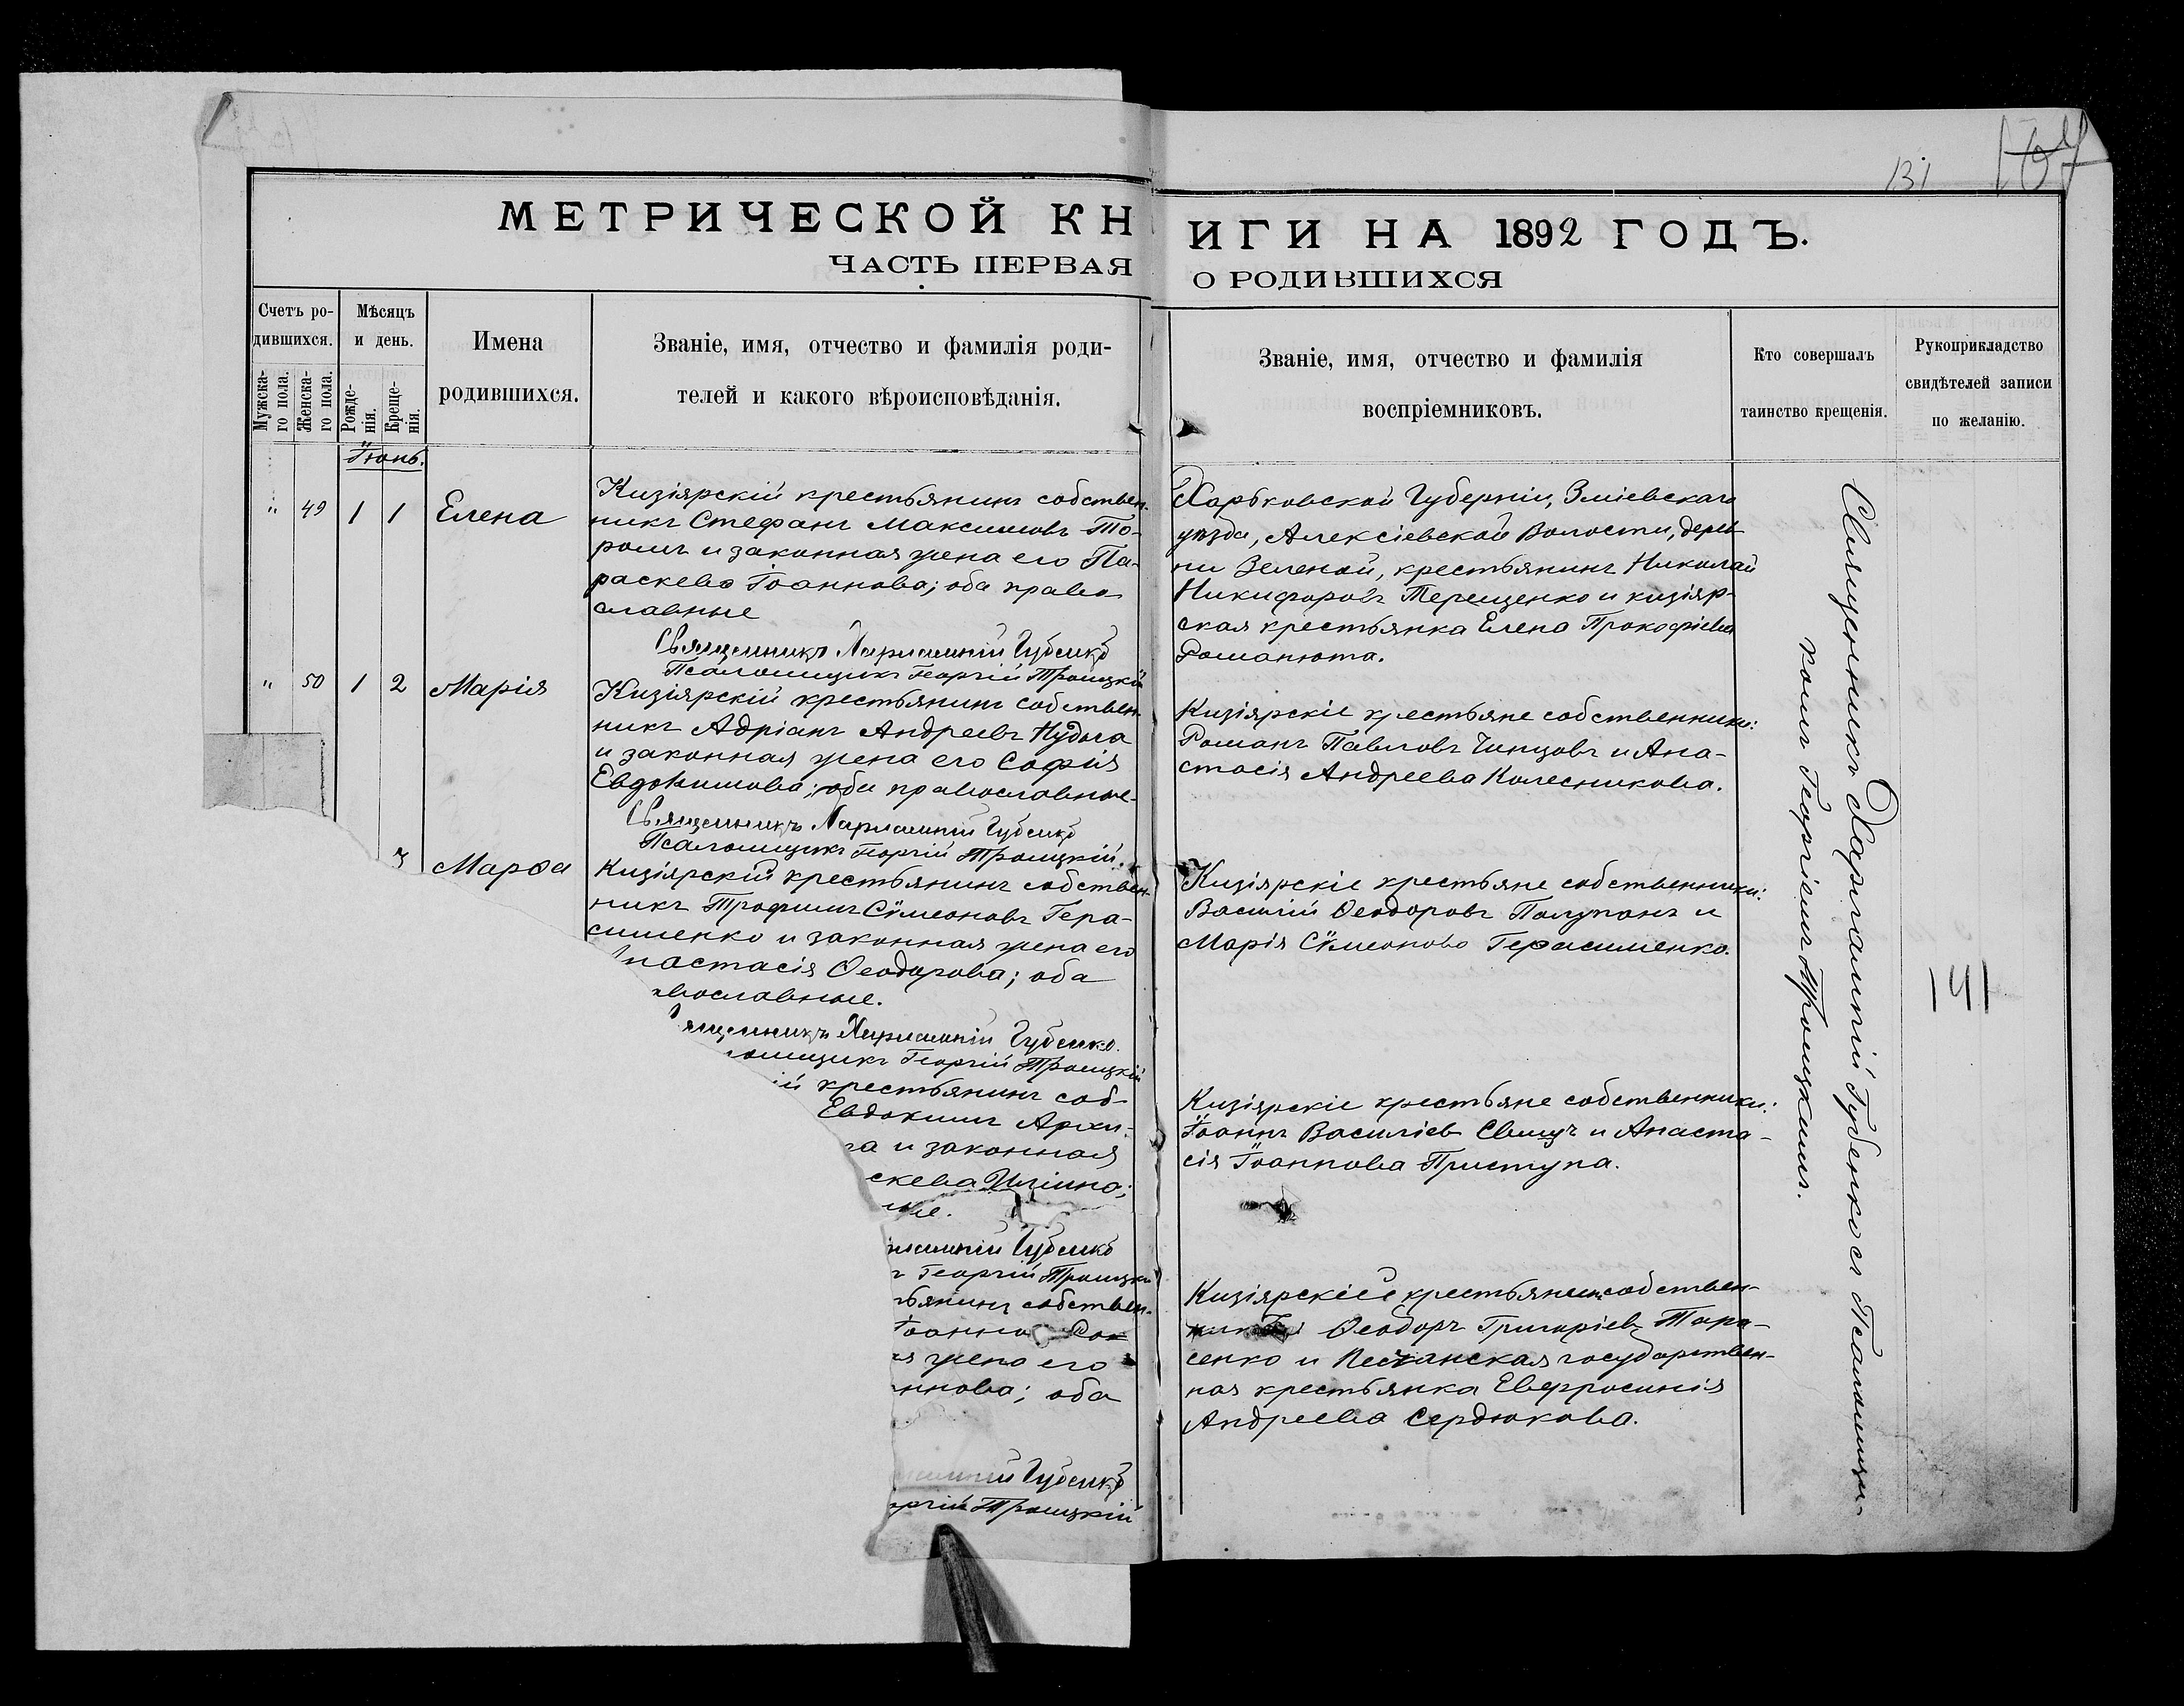 131
МЕТРИЧЕСКОЙ КНИГИ НА 1892 ГОДЪ.
ЧАСТЬ ПЕРВАЯ О РОДИВШИХСЯ
Счетъ ро-
дившихся.
Мужска-
го пола.
Женска-
го пола.
Мѣсяцъ
и день.
Рожде-
нія.
Креще-
нія.
Имена
родившихся.
Званіе, имя, отчество и фамилія роди-
телей и какого вѣроисповѣданія.
Званіе, имя, отчество и фамилія
воспріемниковъ.
Кто совершалъ
таинство крещенія.
Рукоприкладство
свидѣтелей записи
по желанію.
Іюнь.
" 49 1 1 Елена
Кизіярскій крестьянинъ собствен-
никъ Стефанъ Максимовъ То-
ромъ и законная жена его Па-
раскева Іоаннова; оба право
славные
Священникъ Харлампій Губенко
Псаломщикъ Георгій Троицкій
Харьковской Губерніи, Зміевскаго
уѣзда, Алексіевской Волости, дерев
ни Зеленой, крестьянинъ Николай
Никифоровъ Терещенко и кизіяр-
ская крестьянка Елена Прокофіева
Романюта.
" 50 1 2 Марія
Кизіярскій крестьянинъ собствен-
никъ Адріанъ Андреевъ Нудьга
и законная жена его Софія
Евдокимова; оба православные
Священникъ Харлампій Губенко
Псаломщикъ Георгій Троицкій.
Кизіярскіе крестьяне собственники:
Романъ Павловъ Чинцовъ и Ана-
стасія Андреева Колесникова.
3 Марѳа
Кизіярскій крестьянинъ собствен-
никъ Трофимъ Сѵмеоновъ Гера-
сименко и законная жена его
настасія Ѳеодорова; оба
вославные.
ященникъ Харлампій Губенко.
омщикъ Георгій Троицкій
Кизіярскіе крестьяне собственники:
Василій Ѳеодоровъ Полупанъ и
Марія Сѵмеонова Герасименко.
ій крестьянинъ соб-
Евдокимъ Архи-
га и законная
скева Иліина;
ные.
лампій Губенко
ъ Георгій Троицкій
Кизіярскіе крестьяне собственники:
Іоаннъ Василіевъ Свищъ и Анаста-
сія Іоаннова Приступа.
тьянинъ собствен-
Іоанно
я жена его
ннова; оба
лампій Губенко
оргій Троицкій
Кизіярскій крестьянинъ собствен-
Ѳеодоръ Григоріев Тара-
сенко и Песчанская государствен-
ная крестьянка Евфросинія
Андреева Сердюкова.
Священникъ Харлампій Губенко съ Псаломщи-
комъ Георгіемъ Троицкимъ.
141